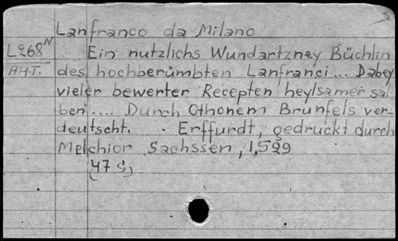 Lanfranco da Milano
L268N Ein nutzlichs Wundartzney Büchlin
AHT. des hochberümbten Lanfranci... Dabey
vieler bewerter Recepten heylsamer sal
ben.... Durch Othonem Brunfels ver-
deutscht. . Erffurdt, gedruckt durch
Melchior Sachssen, 1,529
(47 s)